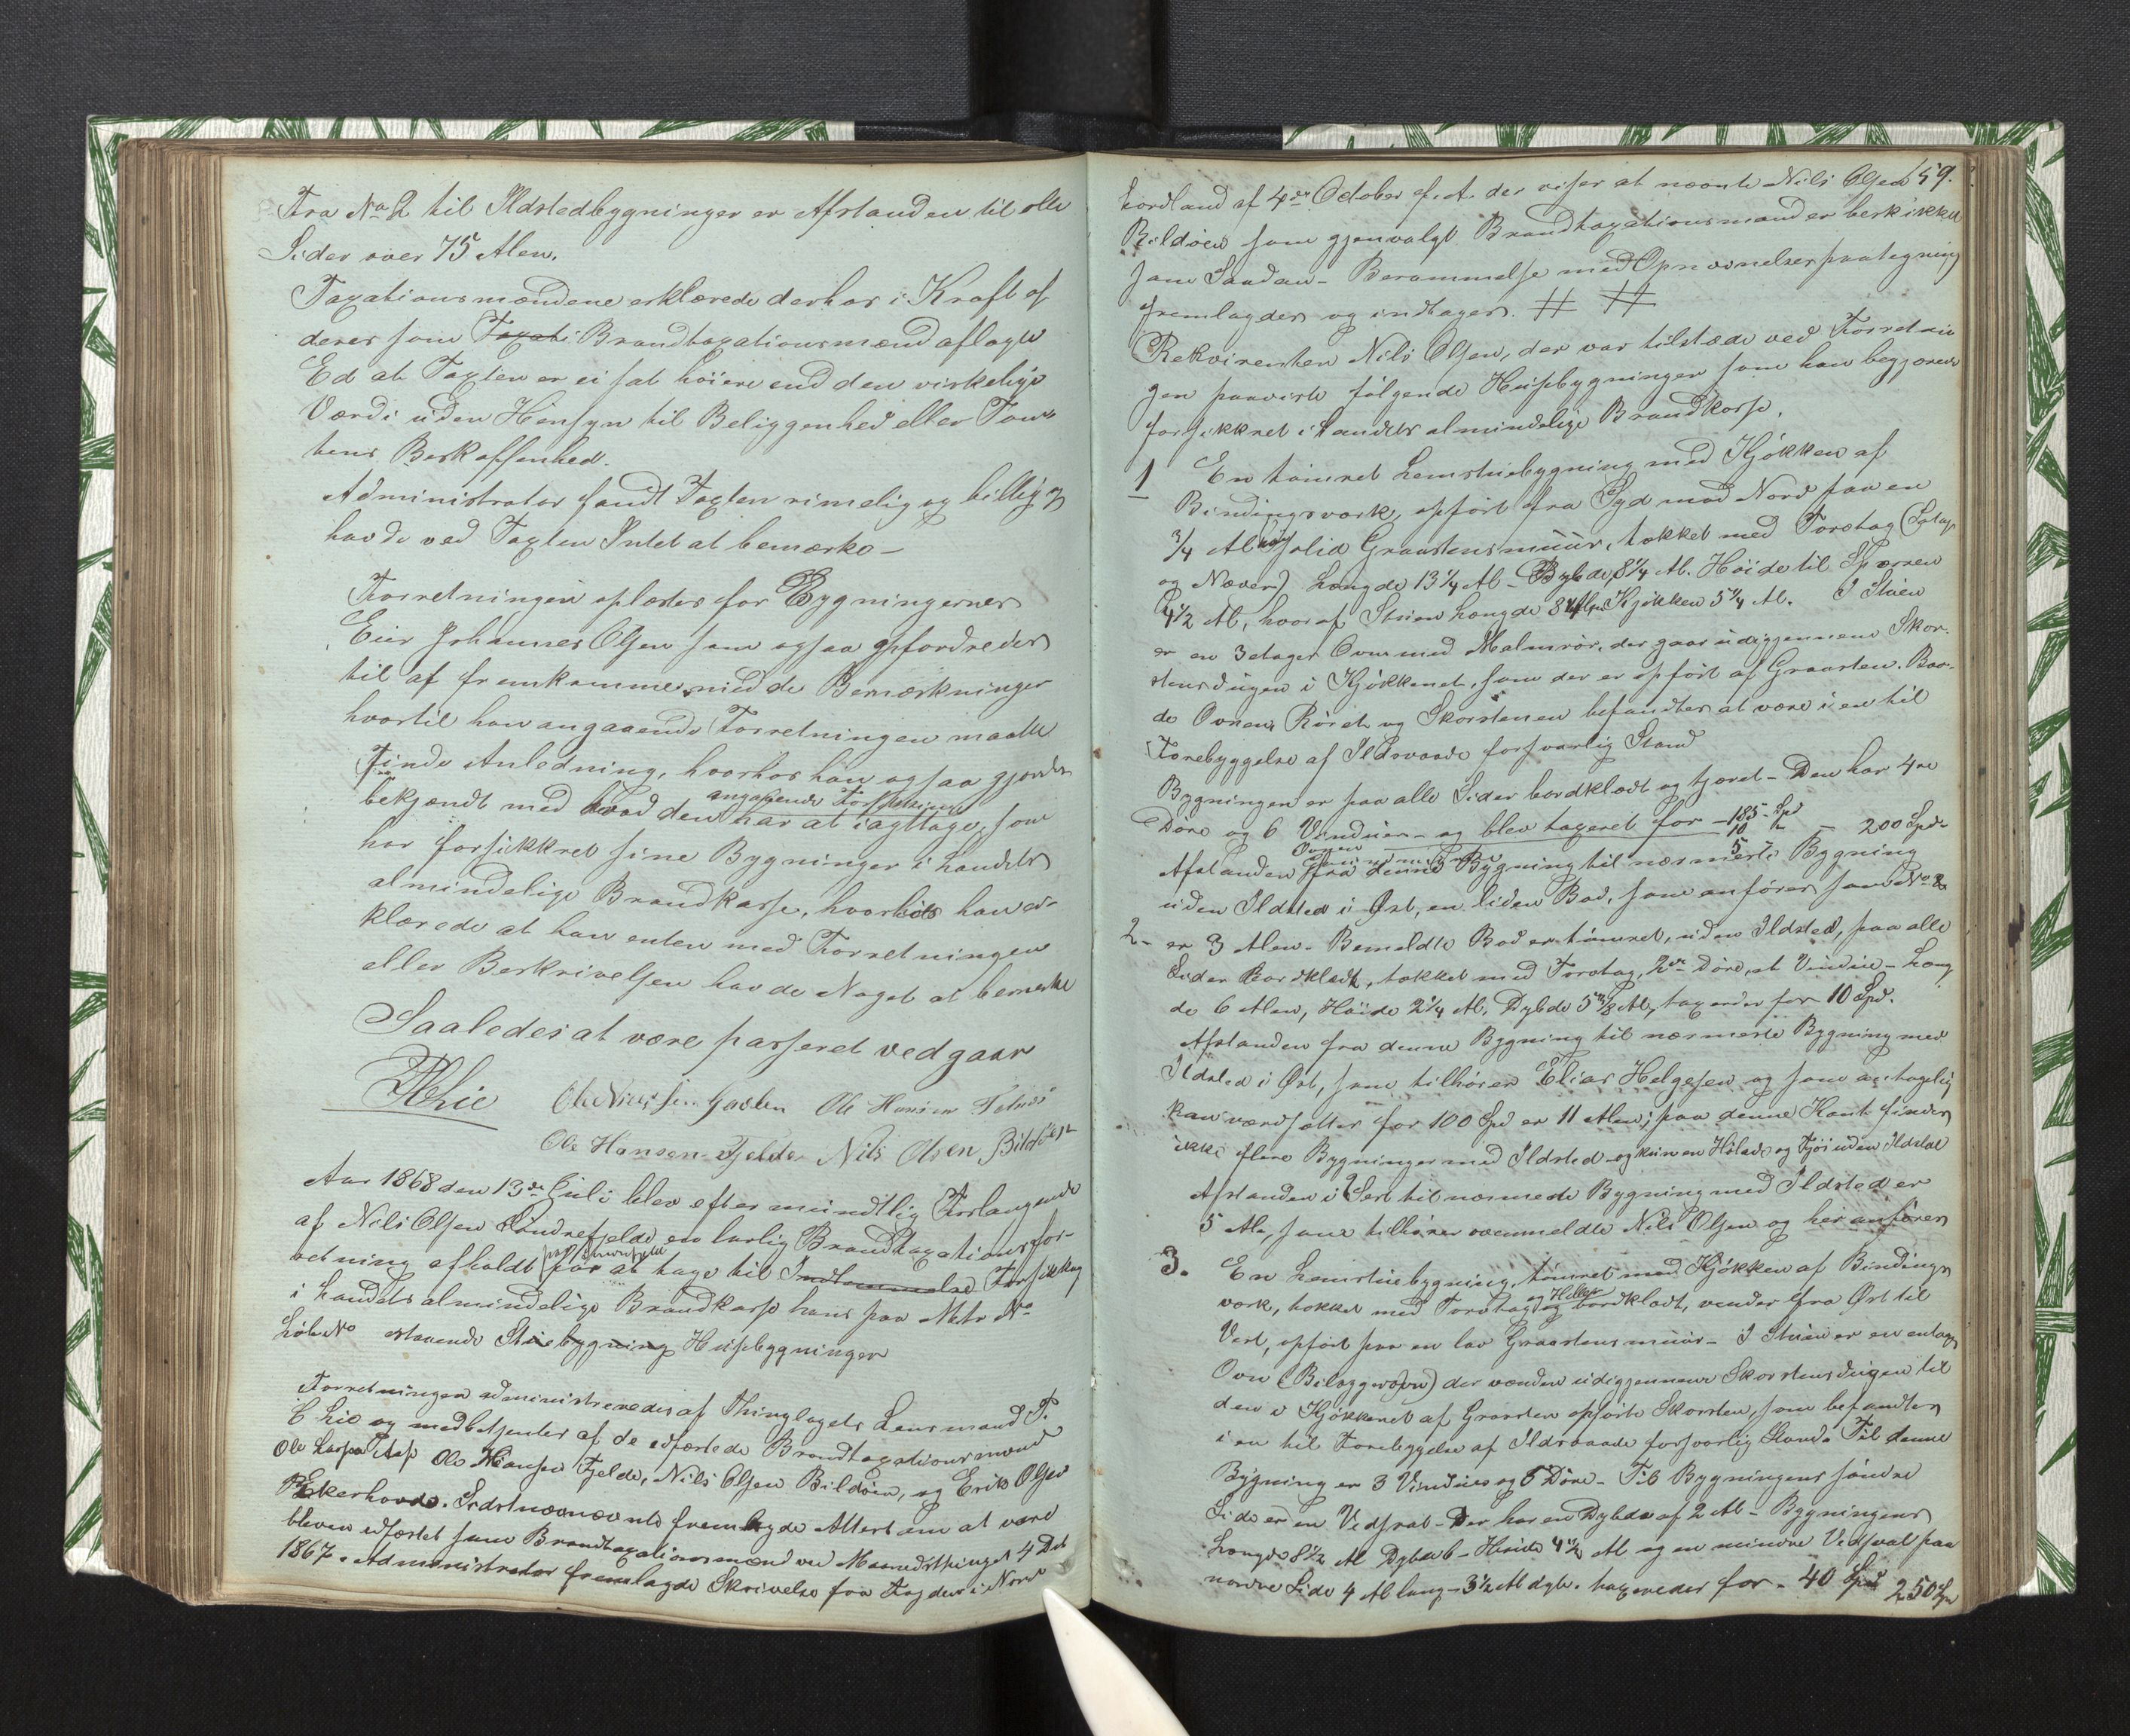 Fra No 2 til Ildstedbygninger er Afstanden til alle
Sider over 75 Alen.
Taxationsmændene erklærede derhos i Kraft af
deres som Taxati Brandtaxationsmænd aflagte
Ed at Taxten er ei sat høiere end den virkelige
Værdi uden Hensyn til Beliggenhed eller Tom-
tens Beskaffenhed.
Administrator fandt Taxten rimelig og billig og
havde ved Taxten Intet at bemærke –
Forretningen oplæstes for Bygningernes
Eier Johannes Olsen som ogsaa opfordredes
til at fremkomme med de Bemærkninger
hvortil han angaaende Forretningen maatte
finde Anledning, hvorhos han ogsaa gjordes
angaaende Forsikring
bekjændt med hvad den har at iagttage, som
har forsikkret sine Bygninger i Landets
almindelige Brandkasse, hvortil han er-
klærede at han enten med Forretningen
eller Beskrivelsen havde Noget at bemerke
Saaledes at være passeret vedgaaes
Ole Hansen Fjelde Nils Olsen Bildöen
Aar 1868 den 13de Juli blev efter mundtlig Forlangende
af Nils Olsen Søndrefjelde en lovlig Brandtaxationsfor-
retning afholdt for at tage til Indtemmelse Forsikkring
i Landets almindelige Brandkasse hans paa Matr No
Løbe No staaende Stuebygning Husebygninger
Forretningen administreredes af Thinglagets Lensmand T.
C Lie og medbetjentes af de edfæstede Brandtaxationsmænd
Ole Hansen Fjelde, Nils Olsen Bildöen, og Erik Olsen
Ekerhovde. Sidstnævnævnte fremlagde Attest om at være
bleven edfæstet som Brandtaxationsmænd ved Maanedsthinget 4 Dec
1867. Administrator fremlagde Skrivelse fra Fogden i Nord
159.
hordland af 4de October f. A. der viser at nævnte Nils Olsen
Bildöen som gjenvalgt Brandtaxationsmand er beskikket
som Saadan – Berammelse med Opnævnelsespaategning
fremlagdes og indtages. # #
Rekvirenten Nils Olsen, der var tilstæde ved Forretnin
gen paaviste følgende Husebygninger som han begjærede
forsikkret i Landets almindelige Brandkasse.
1 En tømret Lemstuebygning med Kjøkken af
Bindingsværk, opført fra Syd mod Nord paa en
3/4 Al høi solid Graastensmuur, tækket med Torvtag
og Næver). Længde 13 1/4 Al – Bybde 8 1/4 Al. Høide til Sparren
4 1/2 Al, hvoraf Stuens Længde 8 Alen Kjøkken 5 1/4 Al. I Stuen
er en 3 etages Ovn med Malmrør, der gaar udigjennem Skor-
stensdugen i Kjøkkenet, som der er opført af Graasten. Baa-
de Ovnen, Røret og Skorstenen befandtes at være i en til
Forebyggelse af Ildsvaade forsvarlig Stand
Bygningen er paa alle Sider bordklædt og tjæret – Den har 4re
Døre og 6 Vinduer – og blev taxeret for – 185 Spd
Ovnen 10 – 200 Spd
5
Afstanden fra denne Bygning til nærmeste Bygning
uden Ildsted i Øst, en liden Bod, som anføres som No 2
2 – er 3 Alen. Bemeldte Bod er tømret, uden Ildsted, paa alle
Sider Bordklædt, tækket med Torvtag, 2de Døre, et Vindue – Læng
de 6 Alen, Høide 2 1/4 Al. Dybde 5 3/8 Al, taxeredes for 10 Spd.
Afstanden fra denne Bygning til nærmeste Bygning med
Ildsted i Øst, som tilhører Elias Helgesen og som antagelig
kan værdsættes for 100 Spd er 11 Alen; paa denne Kant findes
ikke flere Bygninger med Ildsted – og kun en Hølade og Fjøs uden Ildsted
Afstanden i Vest til nærmeste Bygning med Ildsted er
5 Al, som tilhører ovenmeldte Nils Olsen og her anføres
3. En Lemstuebygning, tømret med Kjøkken af Bindings
og Heller
værk, tækket med Torvtag og bordklædt, vender fra Øst til
Vest, opført paa en lav Graastensmuur – I Stuen er en entages
Ovn (Bilæggerovn) der vender udigjennem Skorstensdugen til
den i Kjøkkenet af Graasten opførte Skorsten, som befandtes
i en til Forebyggelse af Ildsvaade forsvarlig Stand. Til denne
Bygning er 3 Vinduer og 5 Døre – Til Bygningens søndre
Side er en Vedsval – Der har en Dybde af 2 Al – Bygningens
Længde 8 1/2 Al Dybde 6 – Høide 4 1/2 Al og en mindre Vedsval paa
nordre Side 4 Al lang – 3 1/2 Al dyb. taxeredes for – 40 Spd 250 Spd